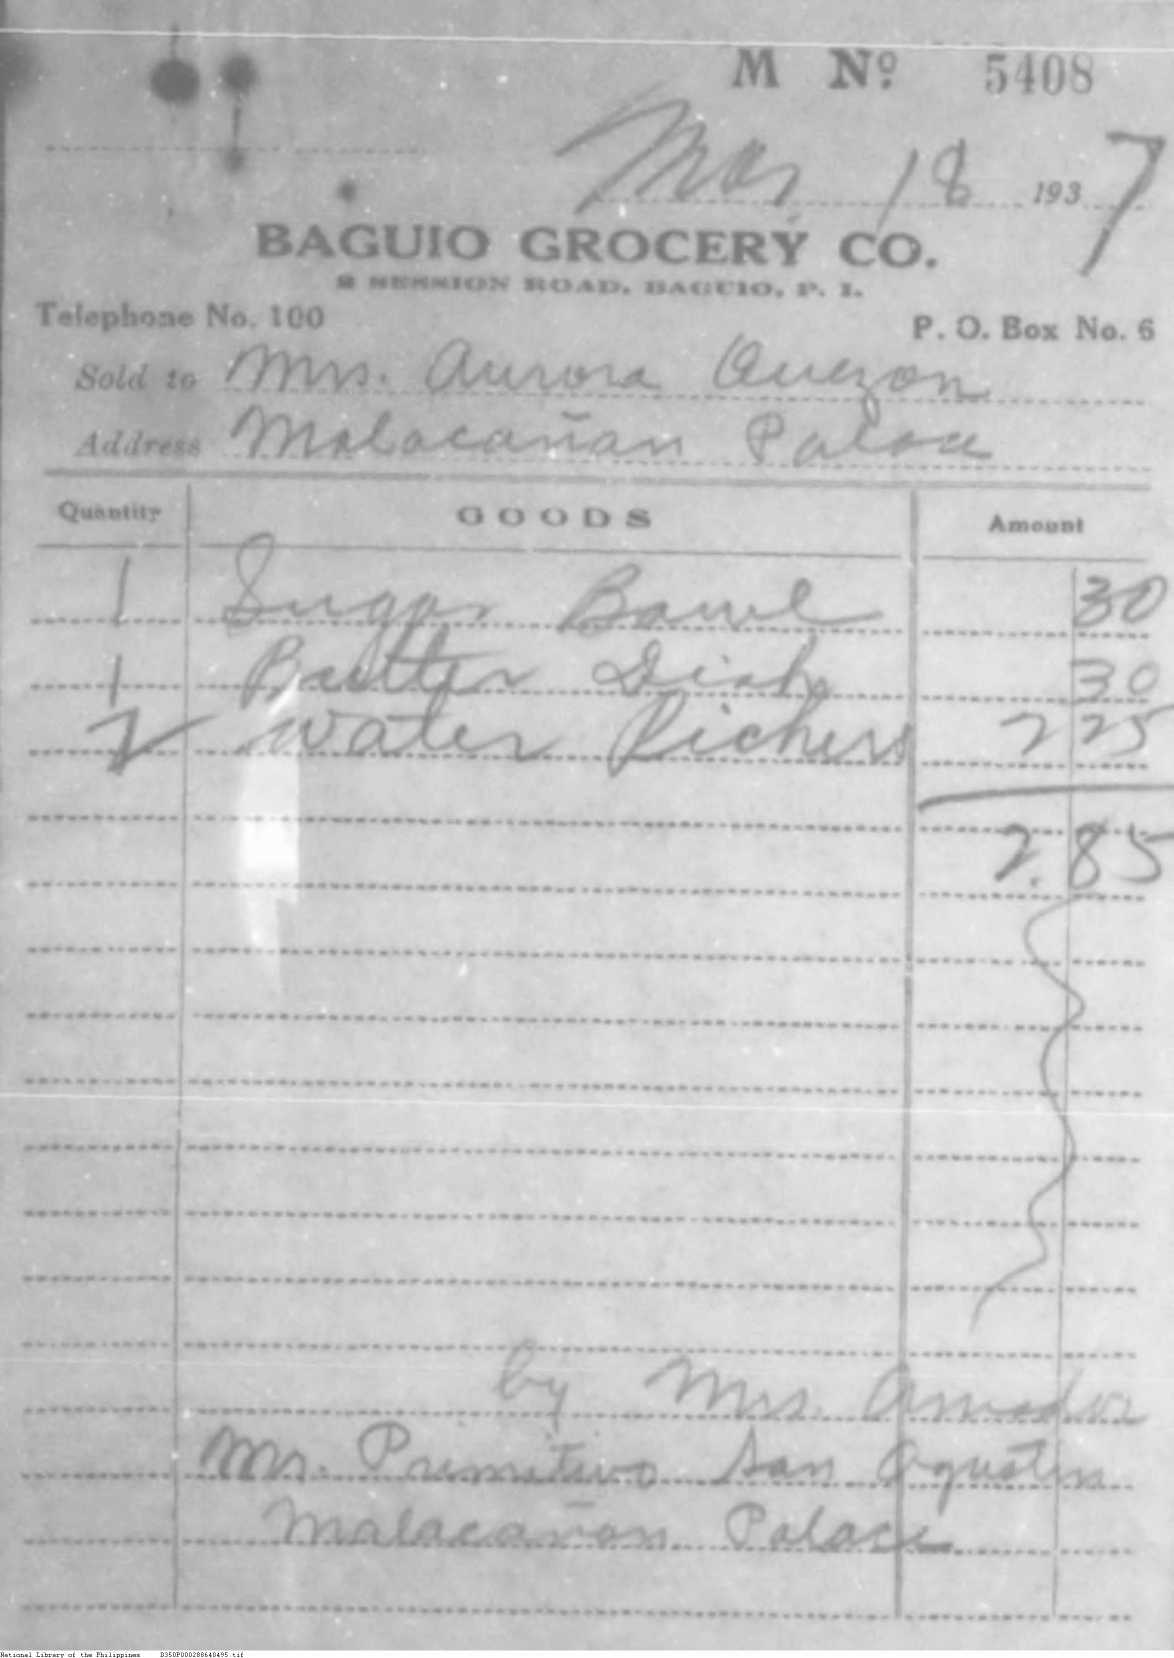 M Nº 5408
Mar 18 1937
BAGUIO GROCERY CO.
2 SESSION ROAD, BAGUIO, P. I.
Telephone No. 100
P. O. Box No. 6
Sold to Mrs. Aurora Quezon
Address Malacañan Palace
Quantity GOODS Amount
1 Sugar Bowl 30
1 Butter Dish 30
2 Water Pichers 2 25
2.85
by Mrs. Amador
Mr. Primitivo San Agustin
Malacañan Palace
National Library of the Philippines D350P000288640495.tif